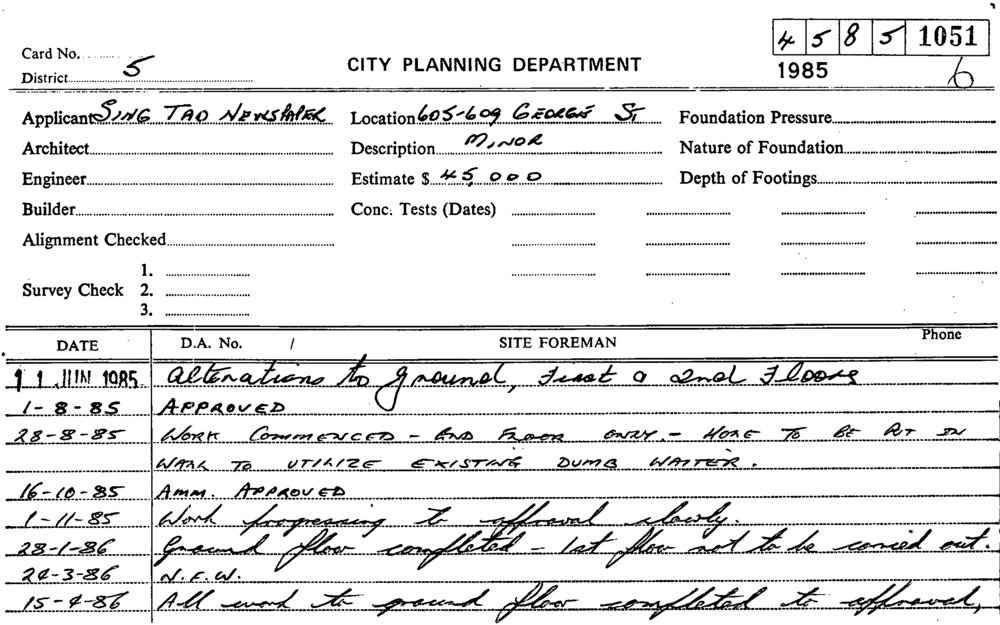 4 5 8 5 1051
Card No.
CITY PLANNING DEPARTMENT
1985 6
District 5
Applicant SING TAO NEWSPAPER Location 605-609 GEORGE ST. Foundation Pressure
Architect Description MINOR Nature of Foundation
Engineer Estimate $ 45,000 Depth of Footings
Builder Conc. Tests (Dates)
Alignment Checked
1.
Survey Check 2.
3.
DATE D.A. No. / SITE FOREMAN Phone
11 JUN 1985 Alterations to ground, First & 2nd Floors
1-8-85 APPROVED
28-8-85 WORK COMMENCED - 2ND FLOOR ONLY. - HOLE TO BE PUT IN
WALL TO UTILIZE EXISTING DUMB WAITER.
16-10-85 AMM. APPROVED
1-11-85 Work progressing to approval slowly.
28-1-86 Ground floor completed - 1st floor not to be carried out.
24-3-86 N.F.W.
15-4-86 All work to ground floor completed to approval,